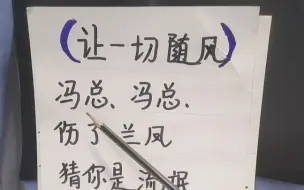 (让一切随风)
冯总、冯总、
伤了兰凤
猜你是流氓